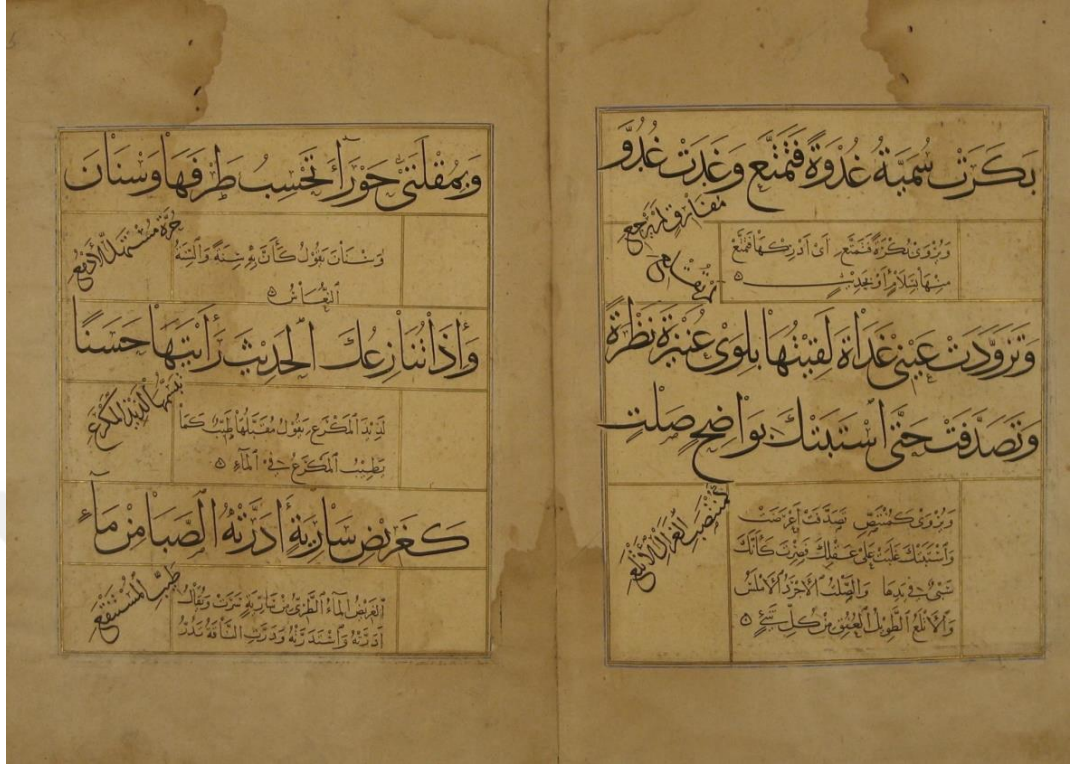 بَكَرَتْ سُمَيَّةُ غُدْوَةً فَتَمَتَّعِ وَغَدَتْ غُدُوَّ
مُفَارِقٍ لَمْ يَرْجِعِ
وَيُرْوَى بُكْرَةً فَتَمَتَّعِ أَيْ أَدْرِكْهَا فَتَمَتَّعْ
مِنْهَا بِسَلَامٍ أَوْ بِحَدِيثٍ ه
وَتَزَوَّدَتْ عَيْنِي غَدَاةَ لَقِيتُهَا بِلِوَى عُنَيْزَةَ نَظْرَةً
وَتَصَدَّفَتْ حَتَّى ٱسْتَبَتْكَ بِوَاضِحٍ صَلْتٍ
كَمُنْتَصِبِ الْغَزَالِ الْأَتْلَعِ
وَيُرْوَى كَمُنْتَصِّ تَصَدَّفَتْ أَعْرَضَتْ
وَٱسْتَبَتْكَ غَلَبَتْ عَلَى عَقْلِكَ فَصِرْتَ كَأَنَّكَ
سَبْيٌ فِي يَدِهَا وَالصَّلْتُ ٱلْأَجْرَدُ ٱلْأَمْلَسُ
وَٱلْأَتْلَعُ ٱلطَّوِيلُ ٱلْعُنُقِ مِنْ كُلِّ شَيْءٍ ه
وَبِمُقْلَتَيْ حَوْرَاءَ تَحْسِبُ طَرْفَهَا وَسْنَانَ
حُرَّةِ مُسْتَهَلِّ الْأَدْمُعِ
وَسْنَانَ يَقُولُ كَأَنَّ بِهِ سِنَةً وَالسِّنَةُ
النُّعَاسُ ه
وَإِذَا تُنَازِعُكَ ٱلْحَدِيثَ رَأَيْتَهَا حَسَنًا
تَبَسُّمُهَا لَذِيذَ الْمَكْرَعِ
لَذِيذَ ٱلْمَكْرَعِ يَقُولُ مُقَبَّلُهَا طَيِّبٌ كَمَا
يَطِيبُ ٱلْمَكْرَعُ فِي ٱلْمَاءِ ه
كَغَرِيضِ سَارِيَةٍ أَدَرَّتْهُ ٱلصَّبَا مِنْ مَاءِ
طَيِّبِ ٱلْمُسْتَنْقَعِ
ٱلْغَرِيضُ ٱلْمَاءُ ٱلطَّرِيُّ مِنْ سَارِيَةٍ سَرَتْ وَيُقَالُ
أَدَرَّتْهُ وَٱسْتَدَرَّتْهُ وَدَرَّتِ النَّاقَةُ تَدُرُّ